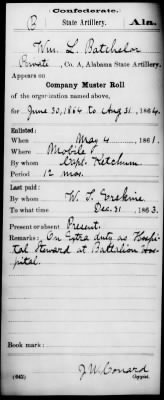 Confederate.
(B) State Artillery. Ala.
Wm. L. Batchelor
Private, Co. A, Alabama State Artillery.
Appears on
Company Muster Roll
of the organization named above,
for June 30, 1864 to Aug 31, 1864.
Enlisted:
When May 4, 1861.
Where Mobile
By whom Capt. Ketchum
Period 12 mos.
Last paid:
By whom W. T. Erskine
To what time Dec. 31, 1863.
Present or absent Present.
Remarks: On Extra duty as Hospi-
tal Steward at Battalion Hos-
pital.
Book mark:
J. W. Conard
(642) Copyist.